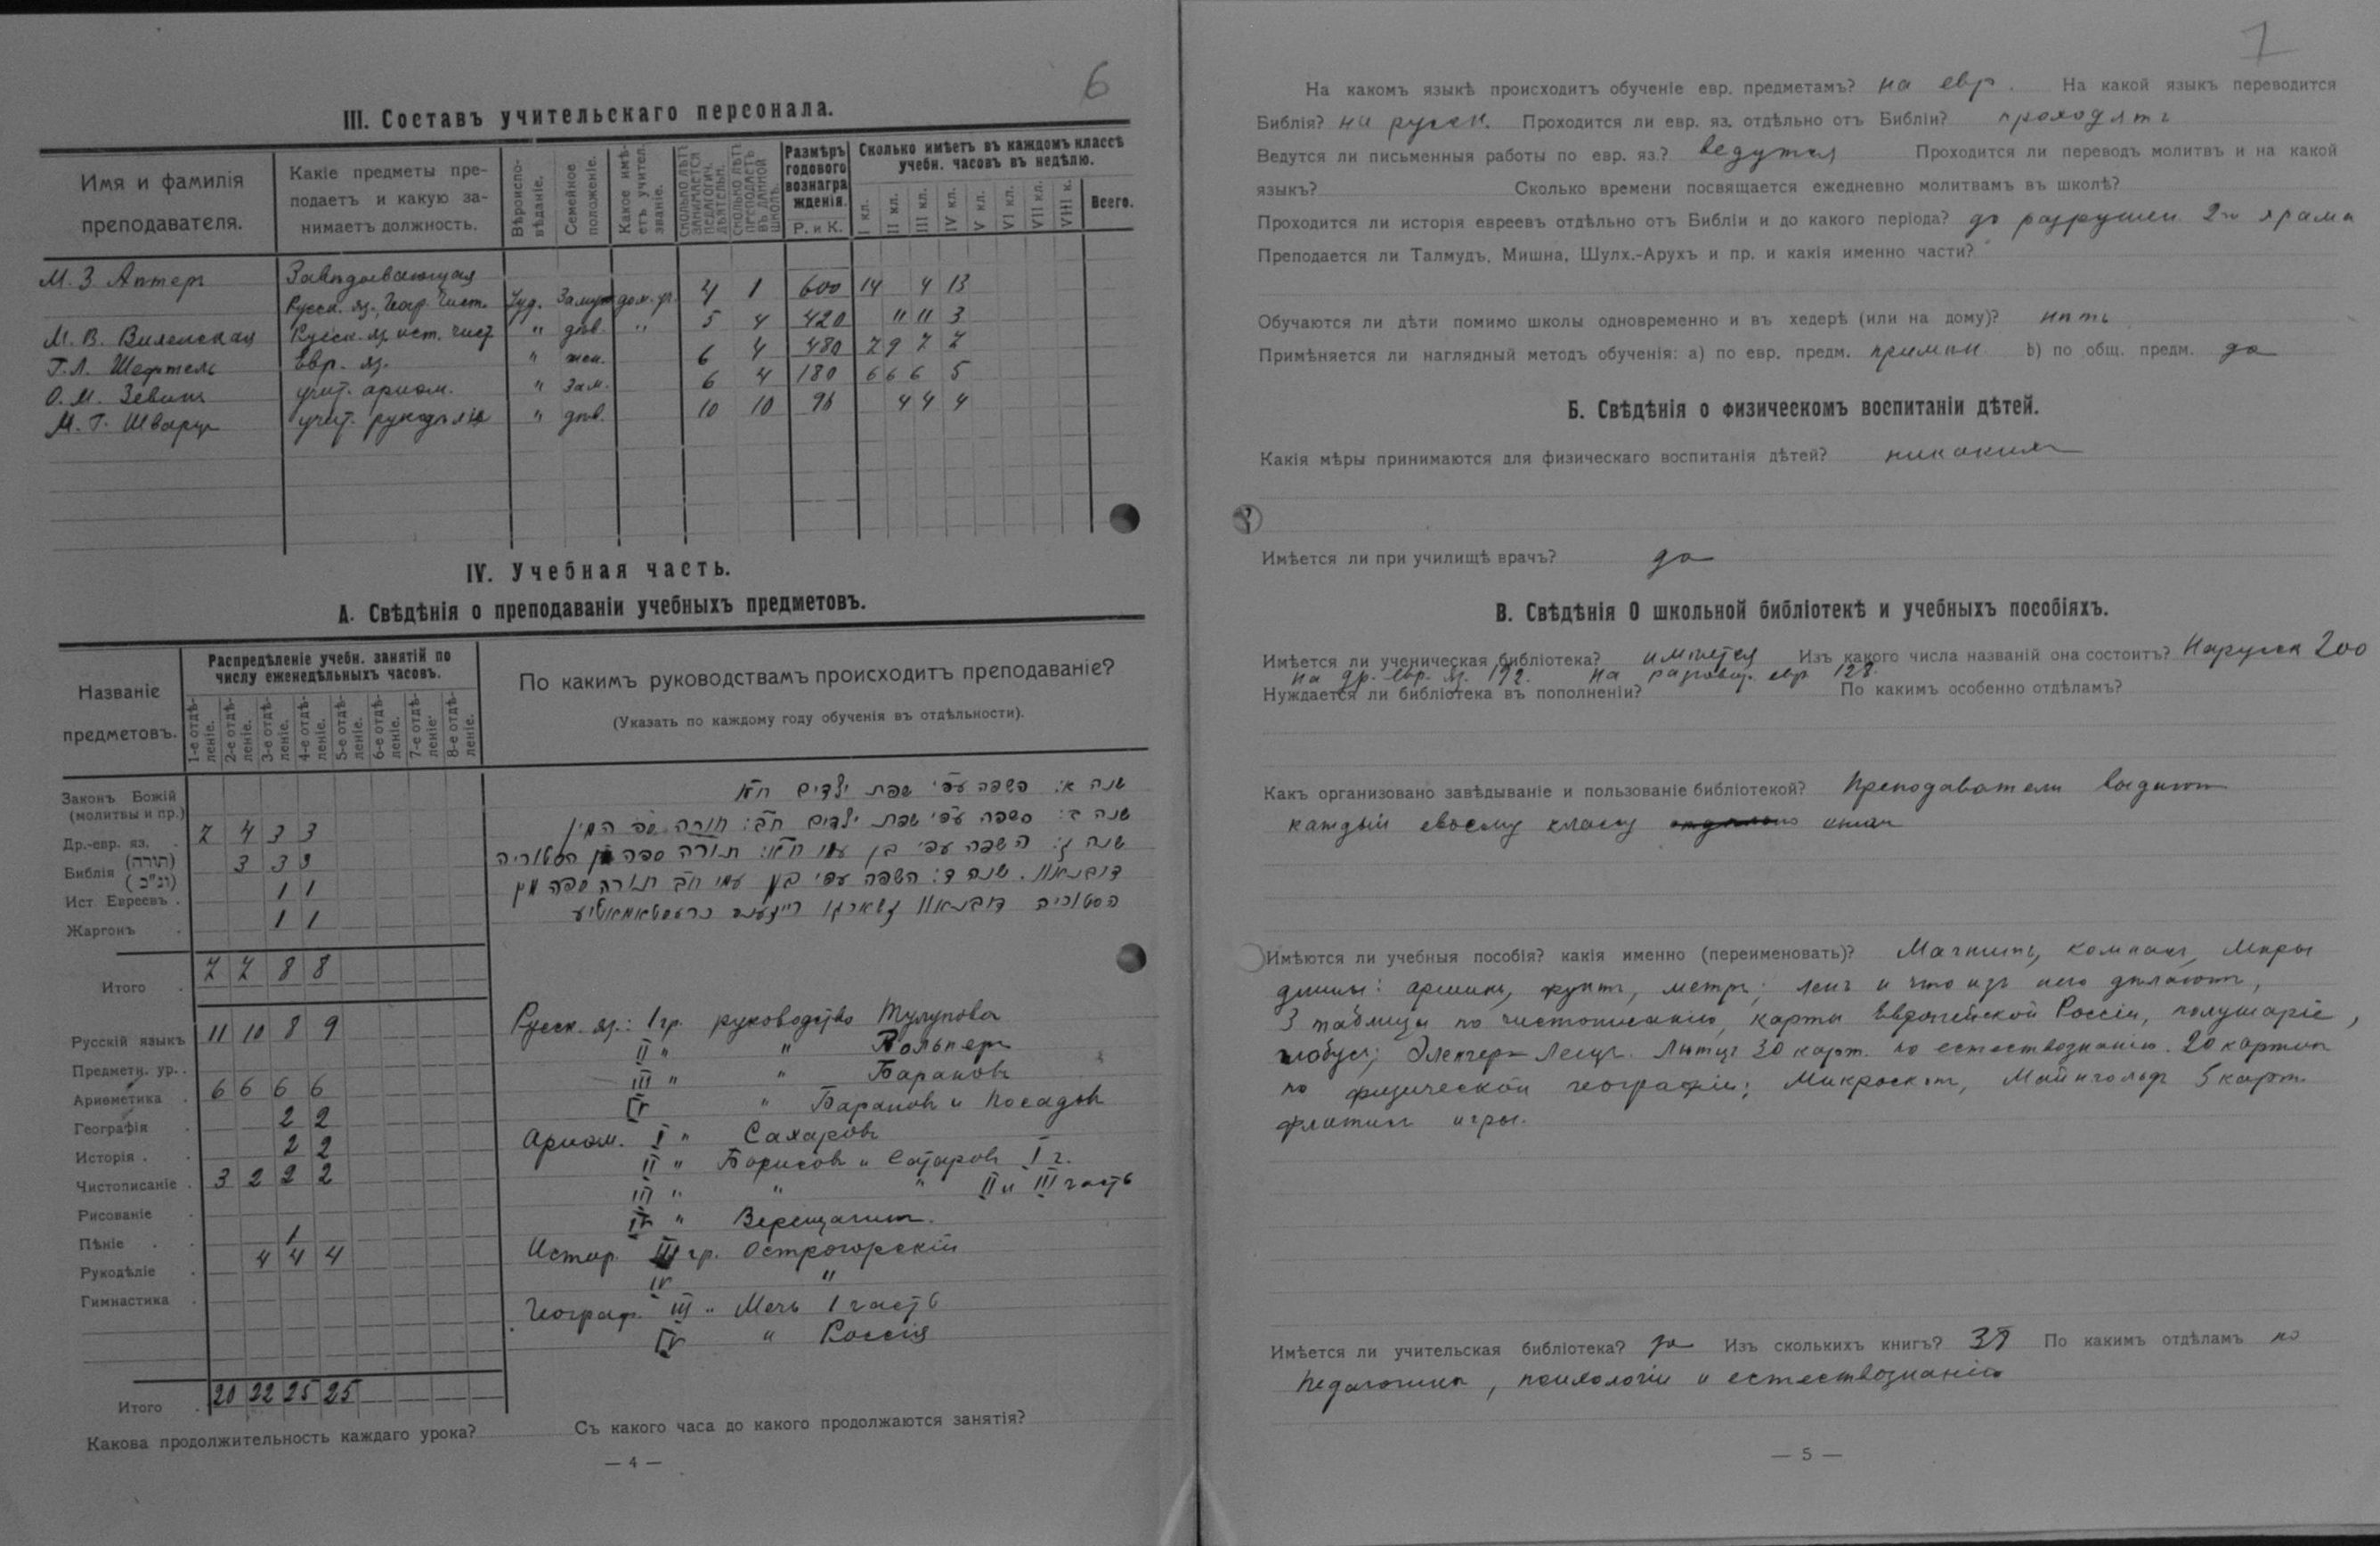 6
III. Составъ учительскаго персонала.
Имя и фамилія преподавателя.
Какіе предметы преподаетъ и какую занимаетъ должность.
Вѣроисповѣданіе.
Семейное положеніе.
Какое имѣетъ учител. званіе.
Сколько лѣтъ занимается педагогич. дѣятельн.
Сколько лѣтъ преподаетъ въ данной школѣ.
Размѣръ годового вознагражденія. Р. и К.
Сколько имѣетъ въ каждомъ классѣ учебн. часовъ въ недѣлю.
I кл. II кл. III кл. IV кл. V кл. VI кл. VII кл. VIII к. Всего.
М. З. Аптеръ Завѣдывающая
Русск. яз., Геор. Чист. Іуд. Замуж дом. уч. 4 1 600 14 4 13
М. В. Виленская Русск. яз. ист. чист. " дѣв. " 5 4 420 11 11 3
Г. Л. Шефтель Евр. яз. " жен. 6 4 480 7 9 7 7
О. М. Зевинъ учит. ариѳм. " Зам. 6 4 180 6 6 6 5
М. Г. Шварцъ учит. рукодѣлія " дѣв. 10 10 96 4 4 4
IV. Учебная часть.
А. Свѣдѣнія о преподаваніи учебныхъ предметовъ.
Названіе предметовъ.
Распредѣленіе учебн. занятій по числу еженедѣльныхъ часовъ.
1-е отдѣленіе. 2-е отдѣленіе. 3-е отдѣленіе. 4-е отдѣленіе. 5-е отдѣленіе. 6-е отдѣленіе. 7-е отдѣленіе. 8-е отдѣленіе.
По какимъ руководствамъ происходитъ преподаваніе?
(Указать по каждому году обученія въ отдѣльности).
Законъ Божій (молитвы и пр.)
Др.-евр. яз. 7 4 3 3
Библія (תורה) (ונ"כ) 3 3 3
Ист Евреевъ 1 1
Жаргонъ 1 1
שנה א: השפה עפ"י שפת ילדים ח"א
שנה ב: השפה עפ"י שפת ילדים ח"ב: תורה
שנה ג: השפה עפ"י בן עמי ח"א: תורה הסטוריה
דובנאוו. שנה ד: השפה עפ"י בן עמי ח"ב תורה
הסטוריה דובנאוו
Итого 7 7 8 8
Русскій языкъ 11 10 8 9
Предметн. ур.
Ариѳметика 6 6 6 6
Географія 2 2
Исторія 2 2
Чистописаніе 3 2 2 2
Рисованіе
Пѣніе 1
Рукодѣліе 4 4 4
Гимнастика
Итого 20 22 25 25
Русск. яз.: I гр. руководство Тулупова
II " " Вольперъ
III " " Барановъ
IV " Барановъ и Посадов
Ариѳм. I " Сахаровъ
II " Борисовъ и Сахаровъ I г.
III " " " II и III часть
IV " Верещагинъ.
Истор. III гр. Острогорскій
IV "
Географ. III " Мечъ I часть
IV " Россія
Какова продолжительность каждаго урока? Съ какого часа до какого продолжаются занятія?
— 4 —
7
На какомъ языкѣ происходитъ обученіе евр. предметамъ? на евр. На какой языкъ переводится
Библія? на русск. Проходится ли евр. яз. отдѣльно отъ Библіи? проходятъ
Ведутся ли письменныя работы по евр. яз.? ведутся Проходится ли переводъ молитвъ и на какой
языкъ? Сколько времени посвящается ежедневно молитвамъ въ школѣ?
Проходится ли исторія евреевъ отдѣльно отъ Библіи и до какого періода? до разрушен. 2го храма
Преподается ли Талмудъ, Мишна, Шулх.-Арухъ и пр. и какія именно части?
Обучаются ли дѣти помимо школы одновременно и въ хедерѣ (или на дому)? нѣтъ
Примѣняется ли наглядный методъ обученія: а) по евр. предм. b) по общ. предм. да
Б. Свѣдѣнія о физическомъ воспитаніи дѣтей.
Какія мѣры принимаются для физическаго воспитанія дѣтей? никакихъ
Имѣется ли при училищѣ врачъ? да
В. Свѣдѣнія О школьной библіотекѣ и учебныхъ пособіяхъ.
Имѣется ли ученическая библіотека? имѣется Изъ какого числа названій она состоитъ? На русск 200
на др. евр. яз. 192. на разговор. евр 128.
Нуждается ли библіотека въ пополненіи? По какимъ особенно отдѣламъ?
Какъ организовано завѣдываніе и пользованіе библіотекой? Преподаватели выдают
каждый своему классу
Имѣются ли учебныя пособія? какія именно (переименовать)? Магнитъ, компасъ, Мѣры
длины: аршинъ, футъ, метръ; ленъ и что изъ него дѣлаютъ,
3 таблицы по чистописанію, карты Европейской Россіи, полушаріе,
глобусъ; 30 карт. по естествознанію. 20 картинъ
по физической географіи; Микроскопъ, Майнгольдъ 5 карт.
игры.
Имѣется ли учительская библіотека? да Изъ сколькихъ книгъ? 38 По какимъ отдѣламъ по
педагогикѣ, психологіи и естествознанію
— 5 —